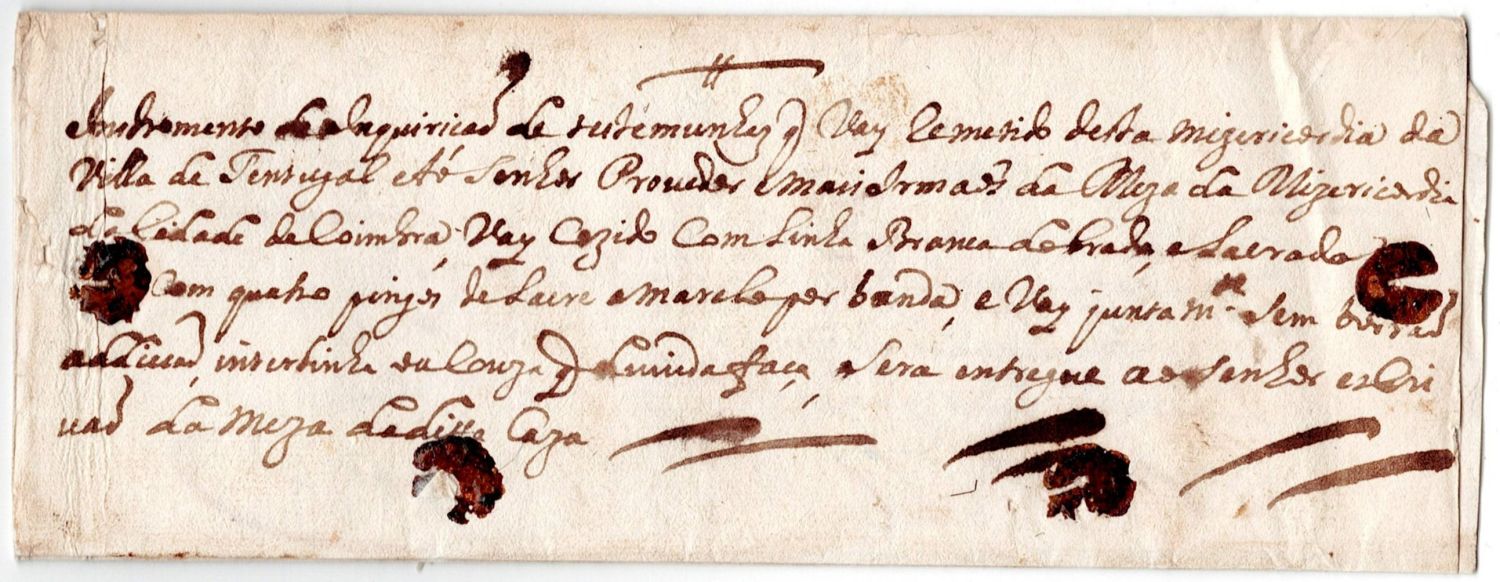 Instromento de Inquiricaõ de testemunhas q Vay Remetido desta Mizericordia da
Villa de Tentugal até Senhor Prouedor e mais Irmaõs da Meza da Mizericordia
da Cidade de Coimbra, Vay Cozido Com Linha Branca dobrada, e Lacrado
Com quatro pingos de Lacre amarelo por banda, e Vay junta m.te Sem borraõ
adiçaõ, interlinha ou Couza q duuida faça, e Sera entregue ao Senhor escri
uaõ da Meza da ditta Caza